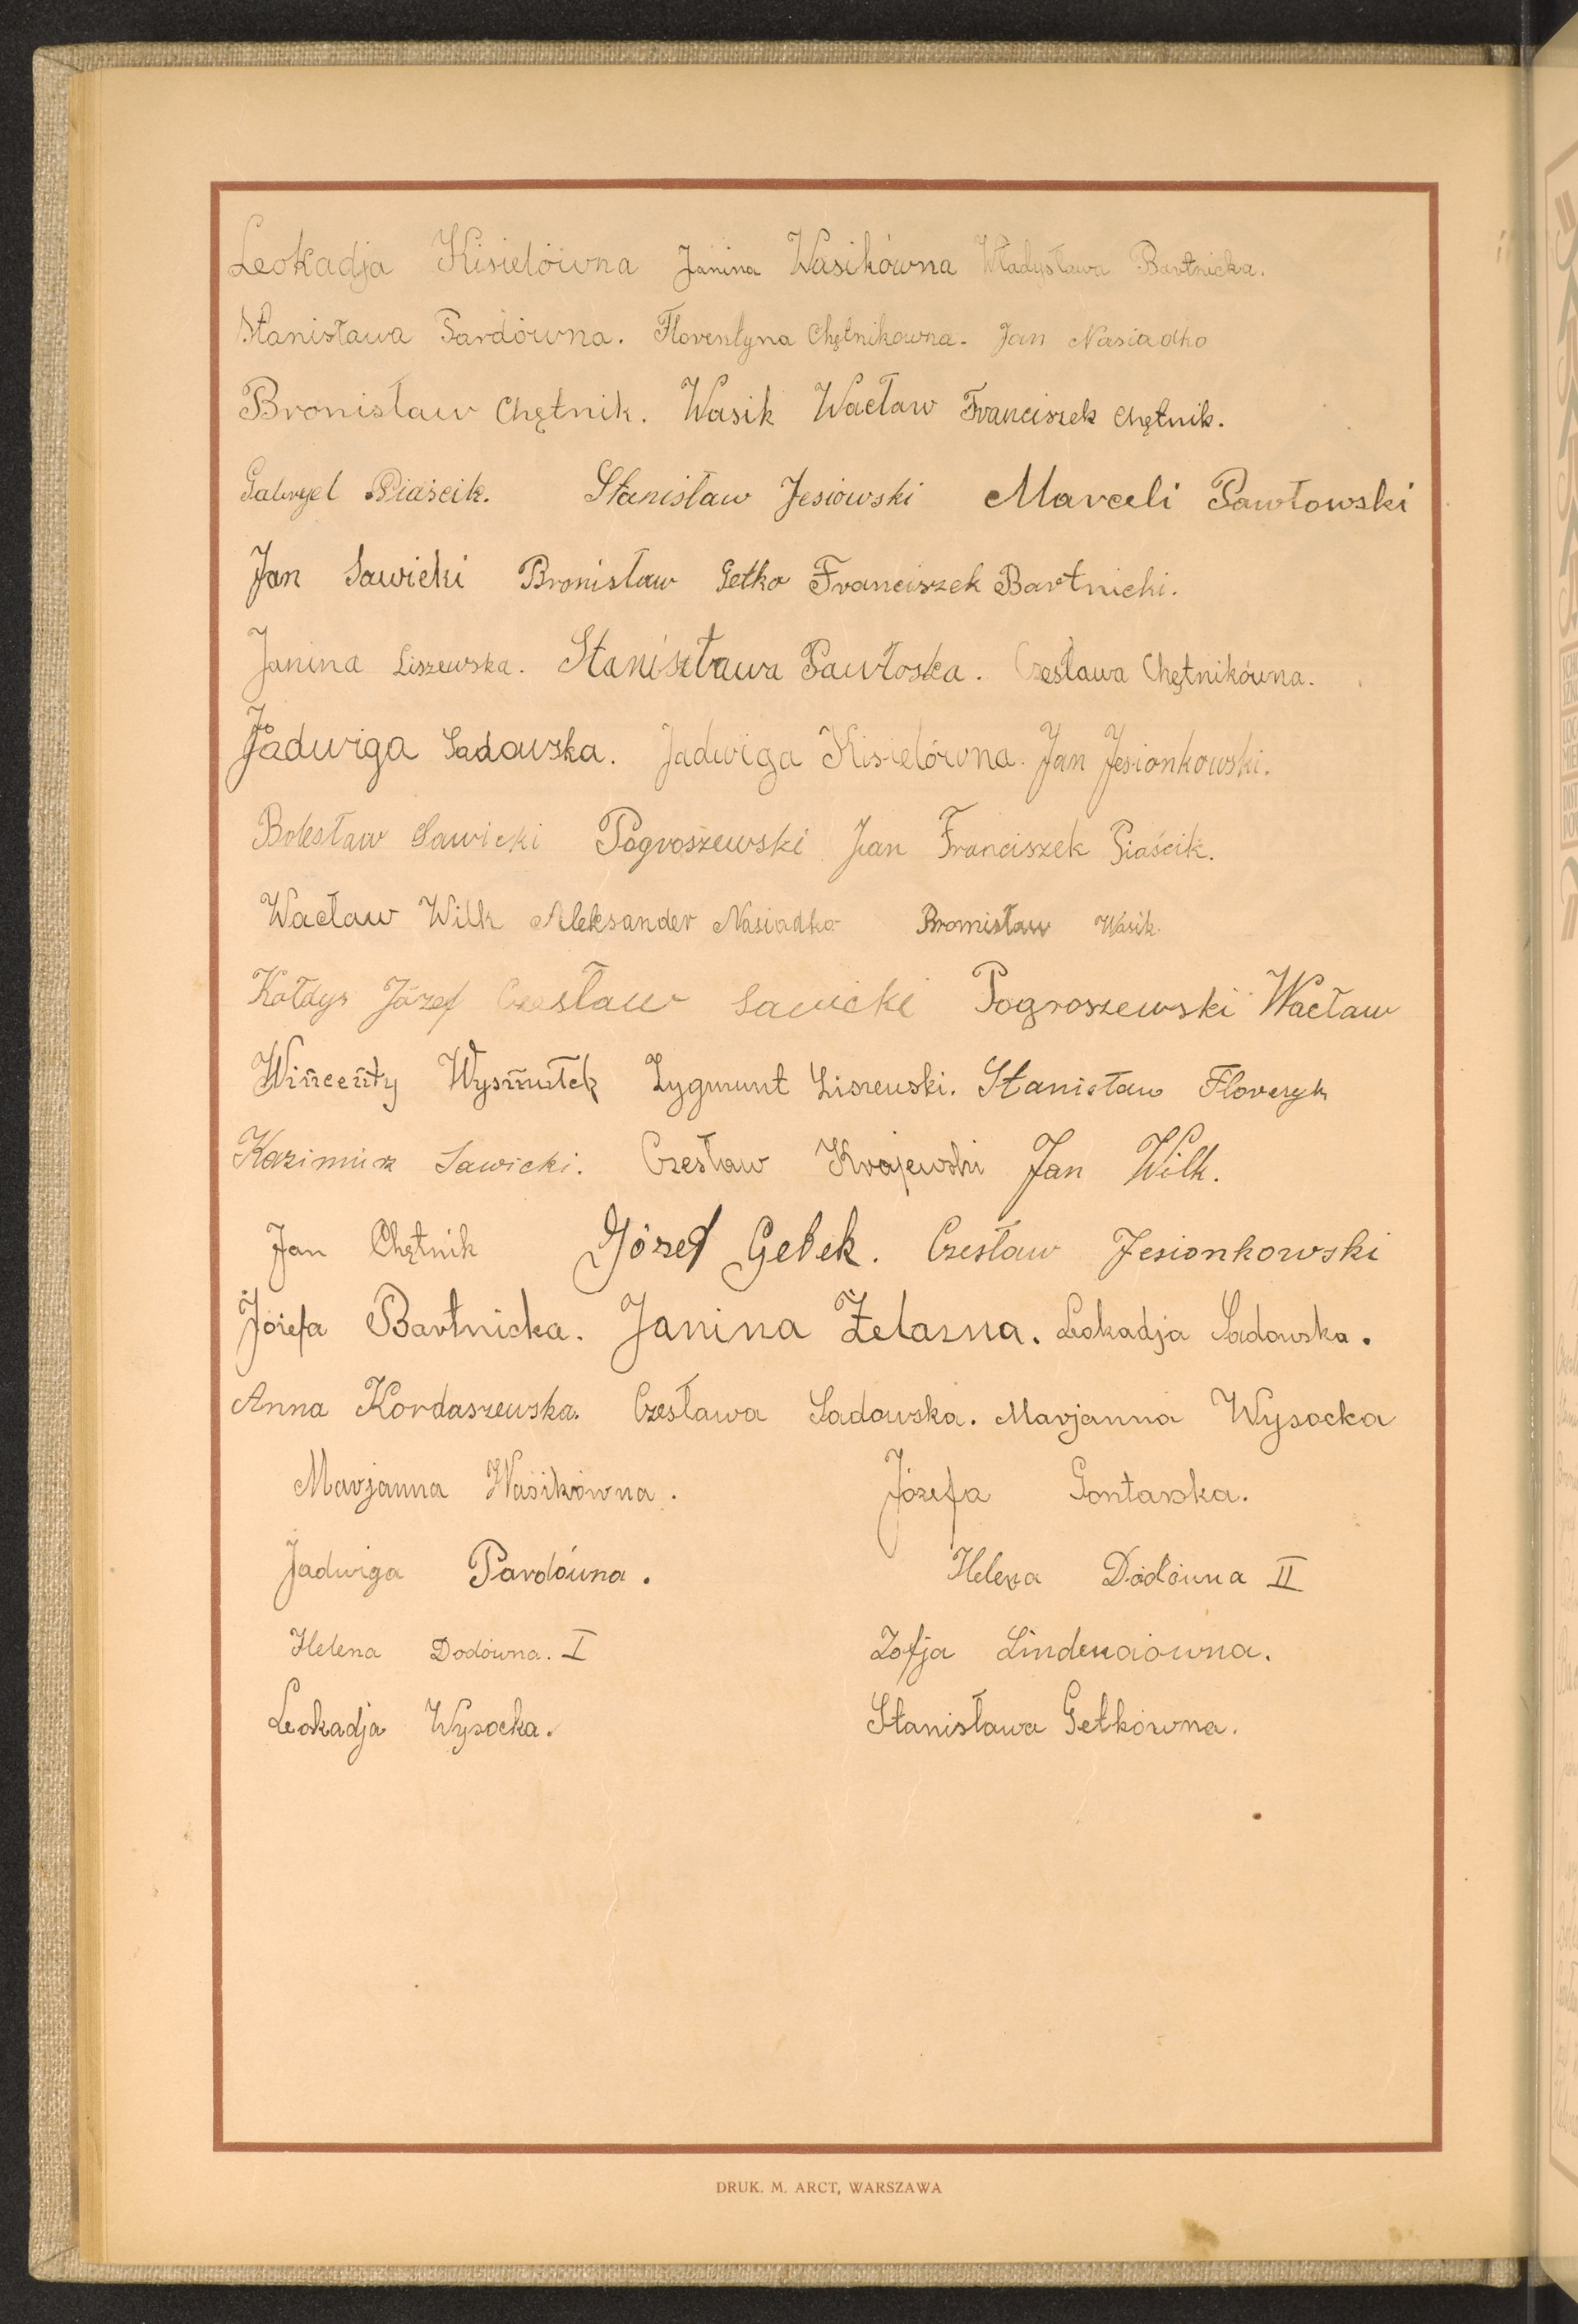 Leokadja Kisielówna Janina Wasikówna Władysława Bartnicka.
Stanisława Pardówna. Florentyna Chętnikowna. Jan Nasiadko
Bronisław Chętnik. Wasik Wacław Franciszek Chętnik.
Gabryel Piaścik. Stanisław Jesiowski Marceli Pawłowski
Jan Sawicki Bronisław Getko Franciszek Bartnicki.
Janina Liszewska. Staniszława Pawłoska. Czesława Chętnikówna.
Jadwiga Sadowska. Jadwiga Kisielówna. Jan Jesionkowski.
Bolesław Sawicki Pogroszewski Jan Franciszek Piaścik.
Wacław Wilk Aleksander Nasiadko Bronisław Wasik
Kołdys Józef Czesław Sawicki Pogroszewski Wacław
Wincenty Wysmułek Zygmunt Liszewski. Stanisław Florczyk
Kazimierz Sawicki. Czesław Krajewski Jan Wilk.
Jan Chętnik Józef Gebek. Czesław Jesionkowski
Józefa Bartnicka. Janina Żelazna. Leokadja Sadowska.
Anna Kordaszewska. Czesława Sadowska. Marjanna Wysocka
Marjanna Wasikówna. Józefa Gontarska.
Jadwiga Pardówna. Helena Dodówna II
Helena Dodówna. I Zofja
Leokadja Wysocka. Stanisława Getkówna.
DRUK. M. ARCT, WARSZAWA